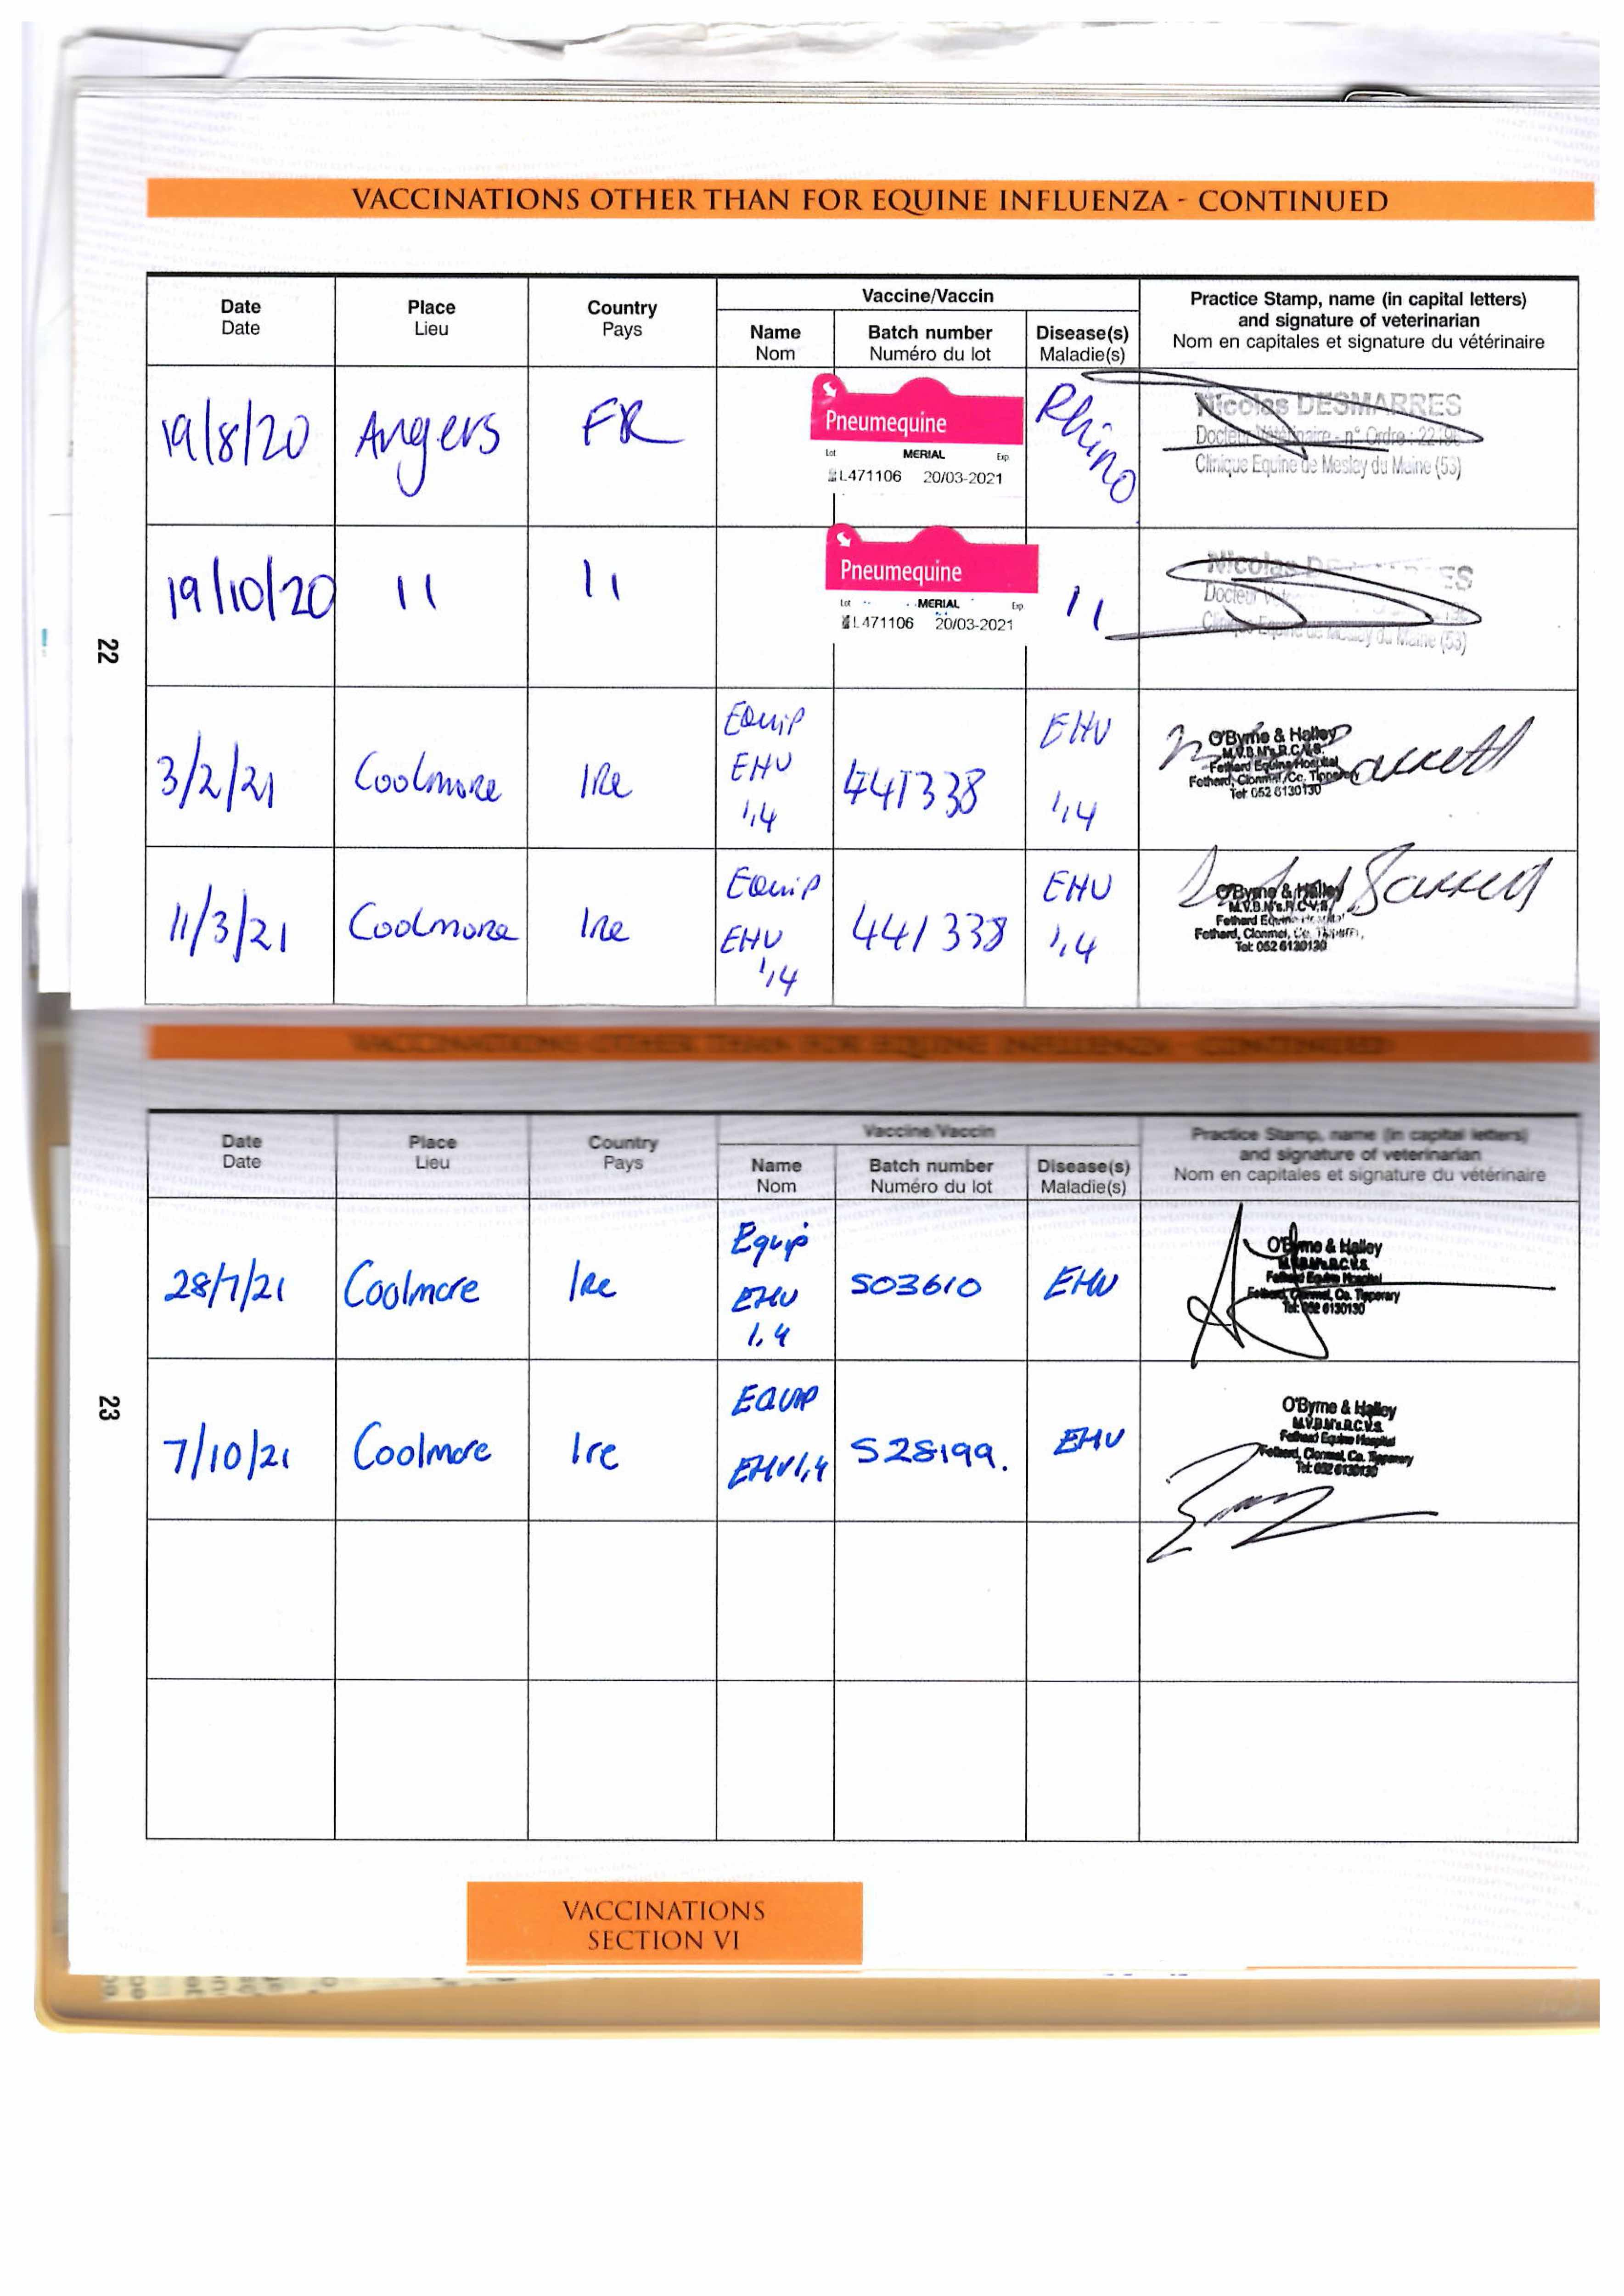 VACCINATIONS OTHER THAN FOR EQUINE INFLUENZA - CONTINUED
Date
Date
Place
Lieu
Country
Pays
Vaccine/Vaccin
Name
Nom
Batch number
Numéro du lot
Disease(s)
Maladie(s)
Practice Stamp, name (in capital letters)
and signature of veterinarian
Nom en capitales et signature du vétérinaire
19/8/20
Angers
FR
Pneumequine
Lot MERIAL Exp
L471106 20/03-2021
Rhino
Nicolas DESMARRES
Docteur Vétérinaire - n° Ordre :
Clinique Equine de Meslay du Maine (53)
19/10/20
11
11
Pneumequine
Lot MERIAL Exp
L471106 20/03-2021
11
Nicolas
Docteur
Clinique Equine de Meslay du Maine (53)
3/2/21
Coolmore
IRe
Equip
EHV
1,4
441338
EHV
1,4
O'Byrne & Halley
M.V.B. M's.R.C.V.S.
Fethard Equine Hospital
Fethard, Clonmel, Co. Tipperary
Tel: 052 6130130
Barrett
11/3/21
Coolmore
Ire
Equip
EHV
1,4
441338
EHV
1,4
O'Byrne & Halley
M.V.B. M's.R.C.V.S.
Fethard Equine Hospital
Fethard, Clonmel, Co. Tipperary
Tel: 052 6130130
Barrett
22
VACCINATIONS OTHER THAN FOR EQUINE INFLUENZA - CONTINUED
Date
Date
Place
Lieu
Country
Pays
Vaccine/Vaccin
Name
Nom
Batch number
Numéro du lot
Disease(s)
Maladie(s)
Practice Stamp, name (in capital letters)
and signature of veterinarian
Nom en capitales et signature du vétérinaire
28/7/21
Coolmore
Ire
Equip
EHV
1,4
503610
EHV
O'Byrne & Halley
M.V.B. M's.R.C.V.S.
Fethard Equine Hospital
Fethard, Clonmel, Co. Tipperary
Tel: 052 6130130
7/10/21
Coolmore
Ire
EQUIP
EHV1,4
528199.
EHV
O'Byrne & Halley
M.V.B. M's.R.C.V.S.
Fethard Equine Hospital
Fethard, Clonmel, Co. Tipperary
Tel: 052 6130130
23
VACCINATIONS
SECTION VI